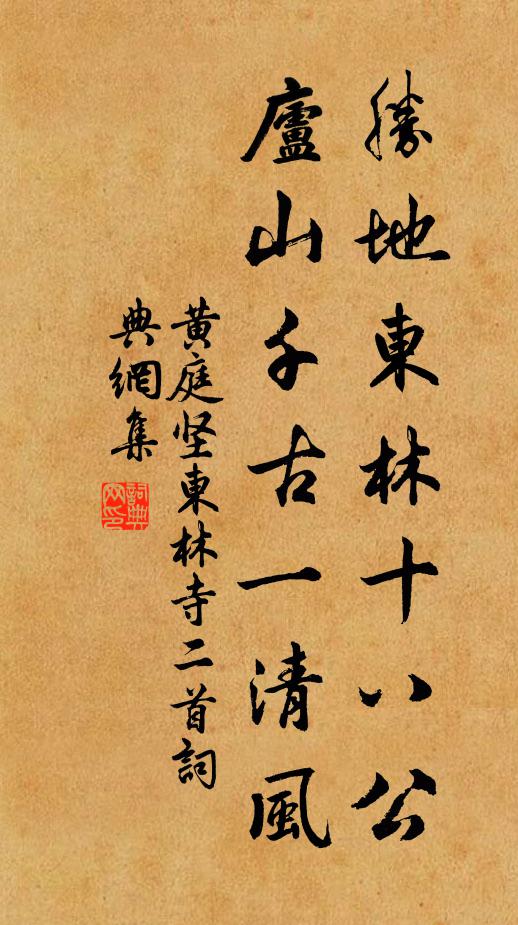 勝地東林十八公
廬山千古一清風
黃庭坚東林寺二首詞
典網集
詞典網印